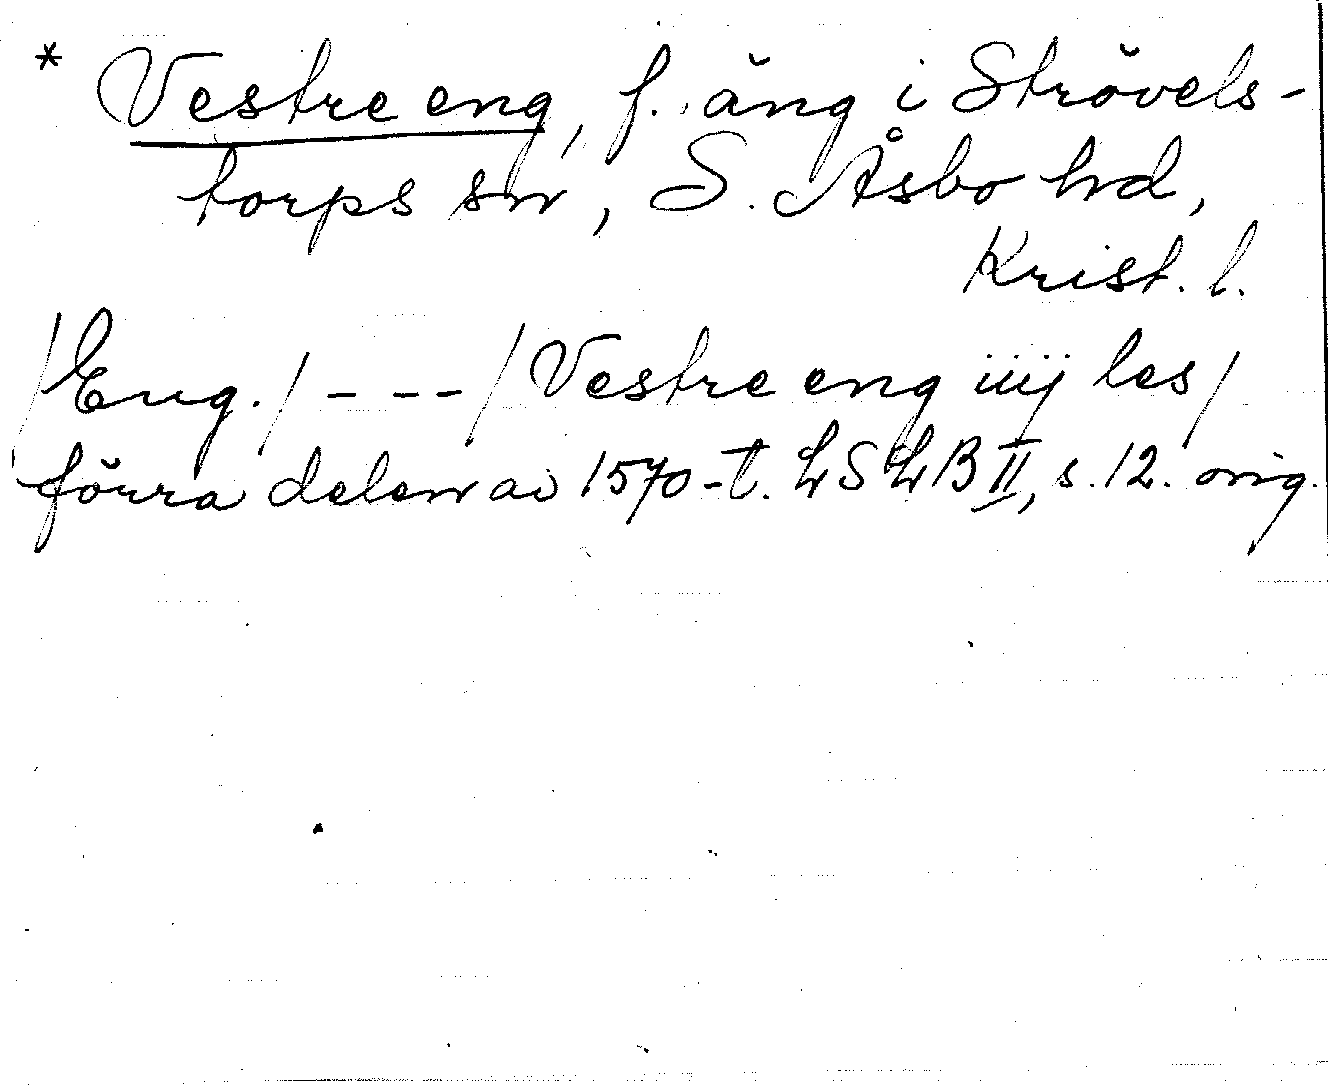 * Vestre eng, f. äng i Strövels-
torps sn, S. Åsbo hd,
Krist. l.
/Eng./ - - - / Vestre eng iiij les /
förra delen av 1570-t. LSLB II, s. 12. orig.